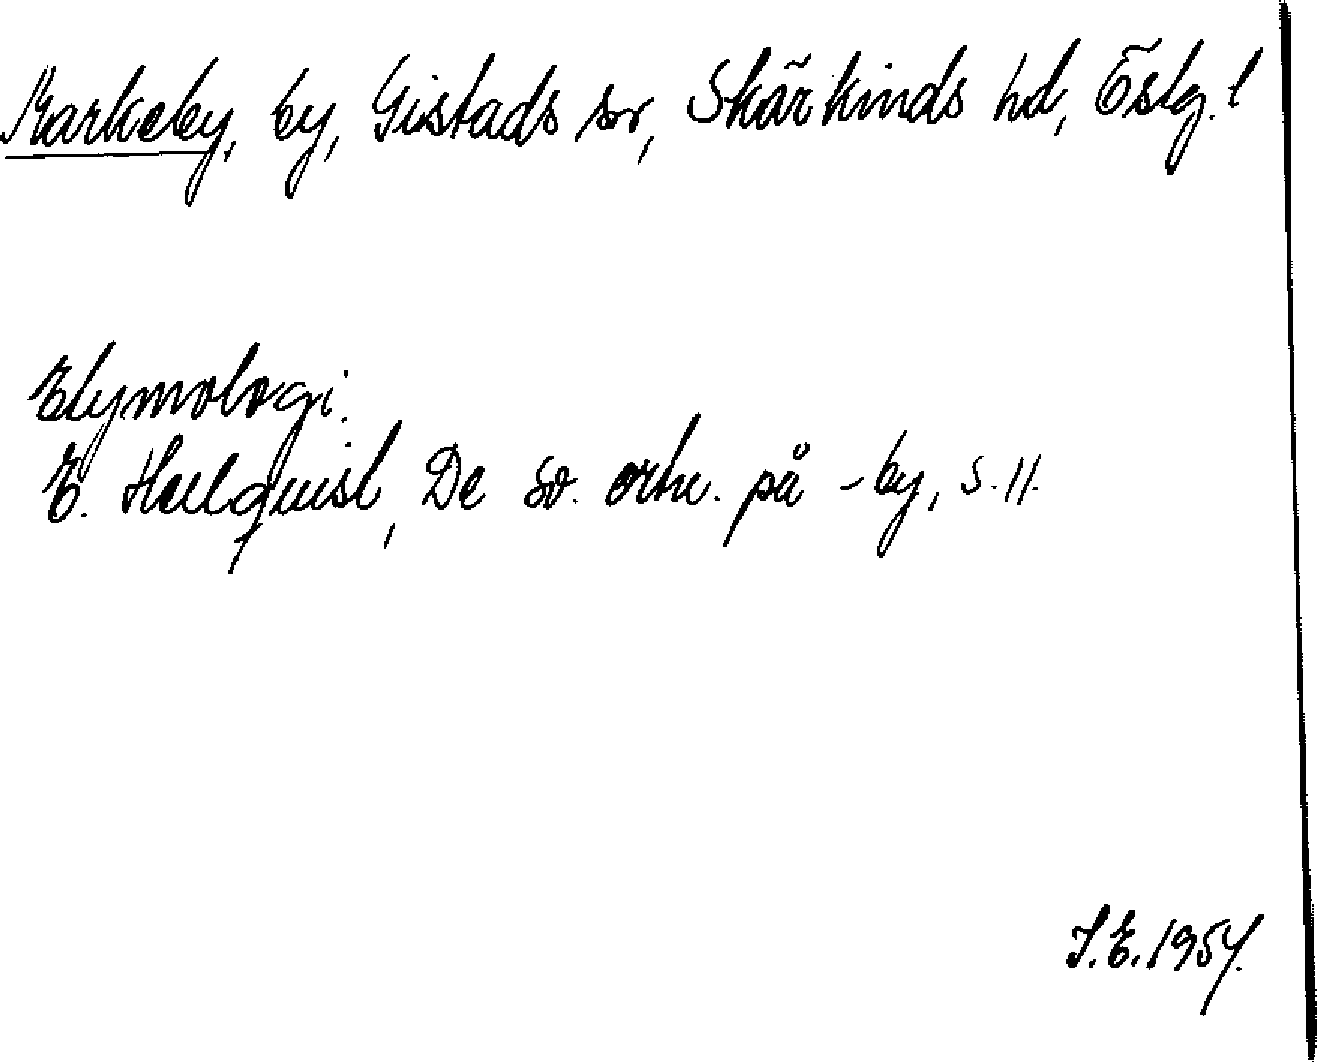 Markeby, by, Gistads sn, Skärkinds hd, Östg. l
Etymologi.
E. Hellquist, De sv. ortn. på -by, s. 11.
I.E. 1954.